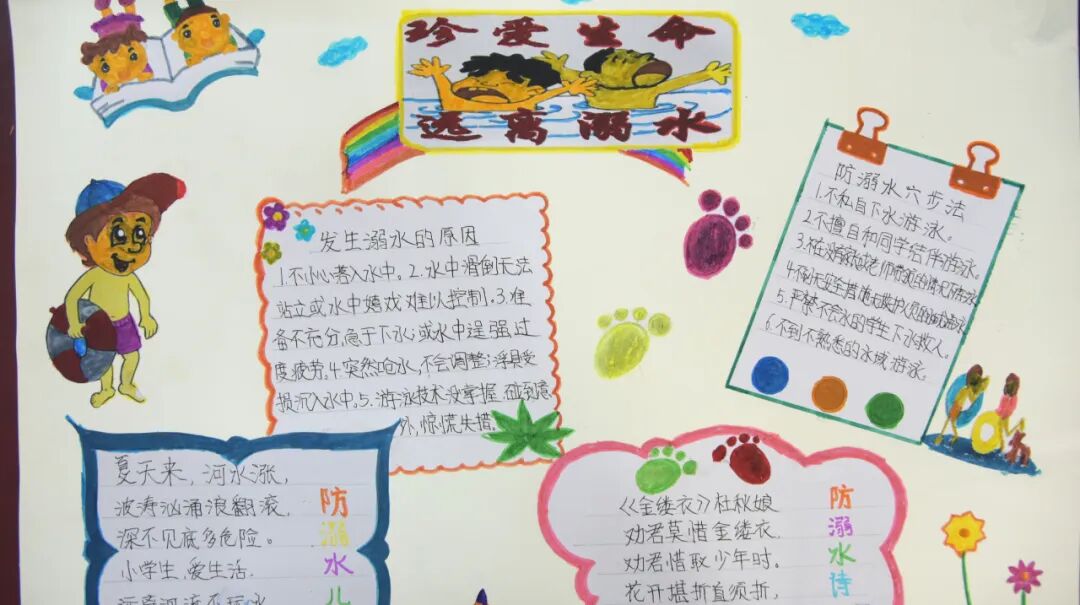 珍爱生命
远离溺水
发生溺水的原因
1.不小心落入水中。2.水中滑倒无法
站立或水中嬉戏难以控制。3.准
备不充分,急于下水心或水中逞强过
度疲劳。4.突然呛水,不会调整;浮具受
损沉入水中。5.游泳技术没掌握,碰到意
外,惊慌失措。
防溺水六步法
1.不私自下水游泳。
2.不擅自和同学结伴游泳。
3.在没有家长或老师带领的情况下游泳
4.不到无安全措施无救护人员的水域游泳
5.严禁不会水的学生下水救人。
6.不到不熟悉的水域游泳。
夏天来,河水涨,
波涛汹涌浪翻滚,
深不见底多危险。
小学生,爱生活,
防溺水儿
《金缕衣》杜秋娘
劝君莫惜金缕衣,
劝君惜取少年时。
花开堪折直须折,
防溺水诗